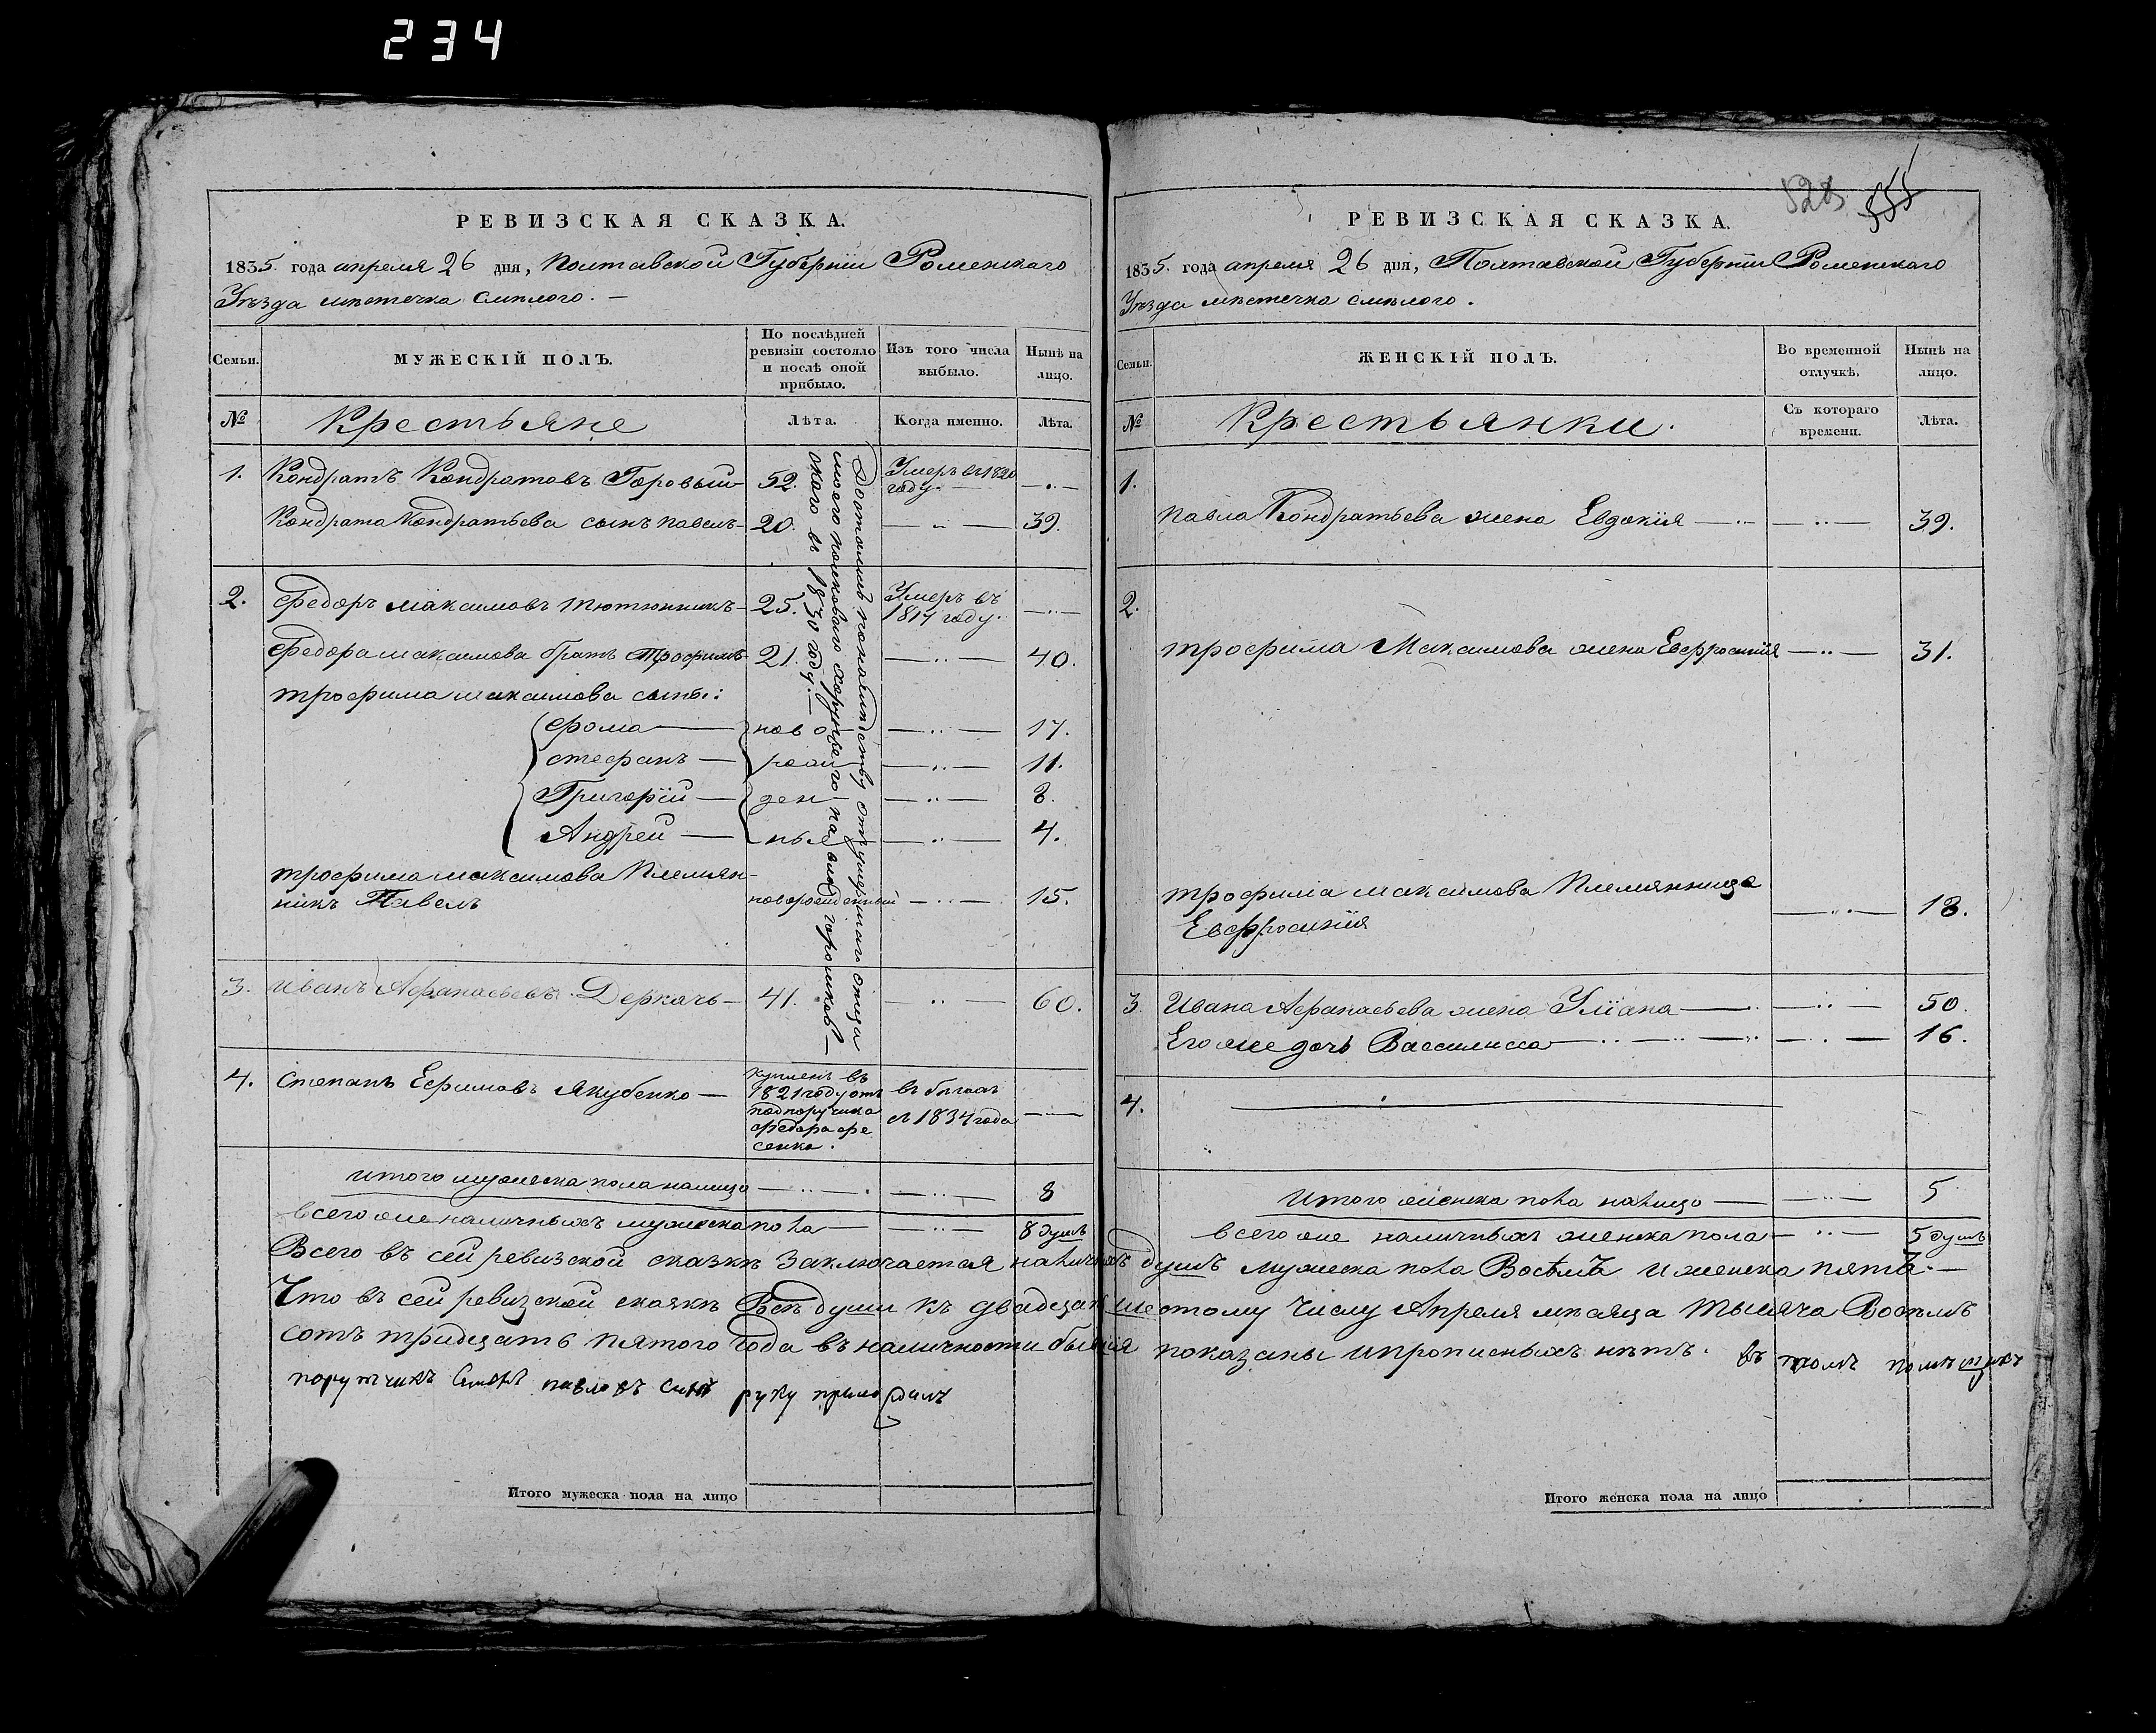 234
РЕВИЗСКАЯ СКАЗКА.
1835. года апреля 26 дня, Полтавской Губернїи Роменскаго
Уѣзда мѣстечка Смѣлого. —
Семьи.
МУЖЕСКІЙ ПОЛЪ.
По послѣдней ревизіи состояло и послѣ оной прибыло.
Изъ того числа выбыло.
Нынѣ на лицо.
№ Крестьяне Лѣта. Когда именно. Лѣта.
1. Кондратъ Кондратовъ Горовый 52. Умеръ въ 1820 году. —
Кондрата Кондратьева сынъ Павелъ 20. — 39.
2. Федоръ Максимовъ Тютюнникъ 25. Умеръ въ 1817 году. —
Федора Максимова братъ Трофимъ 21. — 40.
Трофима Максимова сыны:
Фома — ново — 17.
Стефанъ — рож — 11.
Григорїй — ден — 8.
Андрей — ные — 4.
Трофима Максимова Племян-
никъ Павелъ новорожденный — 15.
3. Иванъ Афанасьевъ Деркачь 41. — 60.
4. Степанъ Ефимовъ Якубенко —
купленъ въ
1821 году отъ
подпоручика
Федора Фе
сенка.
въ бѣгахъ
съ 1834 года
Достались по наслѣдству от умершаго отца
моего полковаго хорунжего Павла
в 1830 году. —
Итого мужеска пола налицо — 8
Всего же наличныхъ мужеска пола — 8 душъ
РЕВИЗСКАЯ СКАЗКА.
528 555
1835. года апреля 26 дня, Полтавской Губернїи Роменскаго
Уѣзда мѣстечка Смѣлого.
Семьи.
ЖЕНСКІЙ ПОЛЪ.
Во временной отлучкѣ.
Нынѣ на лицо.
№ Крестьянки.
Съ котораго времени.
Лѣта.
1.
Павла Кондратьева жена Евдокїя — 39.
2.
Трофима Максимова жена Евфросинїя — 31.
Трофима Максимова Племянница
Евфросинїя — 18.
3. Ивана Афанасьева жена Улїана — 50.
Его же дочь Вассилисса — 16.
4. —
Итого женска пола налицо — 5
Всего же наличныхъ женска пола — 5 душъ
Всего въ сей ревизской сказкѣ заключается наличныхъ душъ мужеска пола Восѣмъ и женска пять. —
Что въ сей ревизской сказкѣ Всѣ души къ двадцать шестому числу Апреля мѣсяца тысяча Восѣмъ
сотъ тридцать пятого года въ наличности бывшїя показаны и прописныхъ нѣтъ. въ томъ помѣщикъ
порутчикъ Семенъ павловъ сынъ руку приложилъ
Итого мужеска пола на лицо
Итого женска пола на лицо